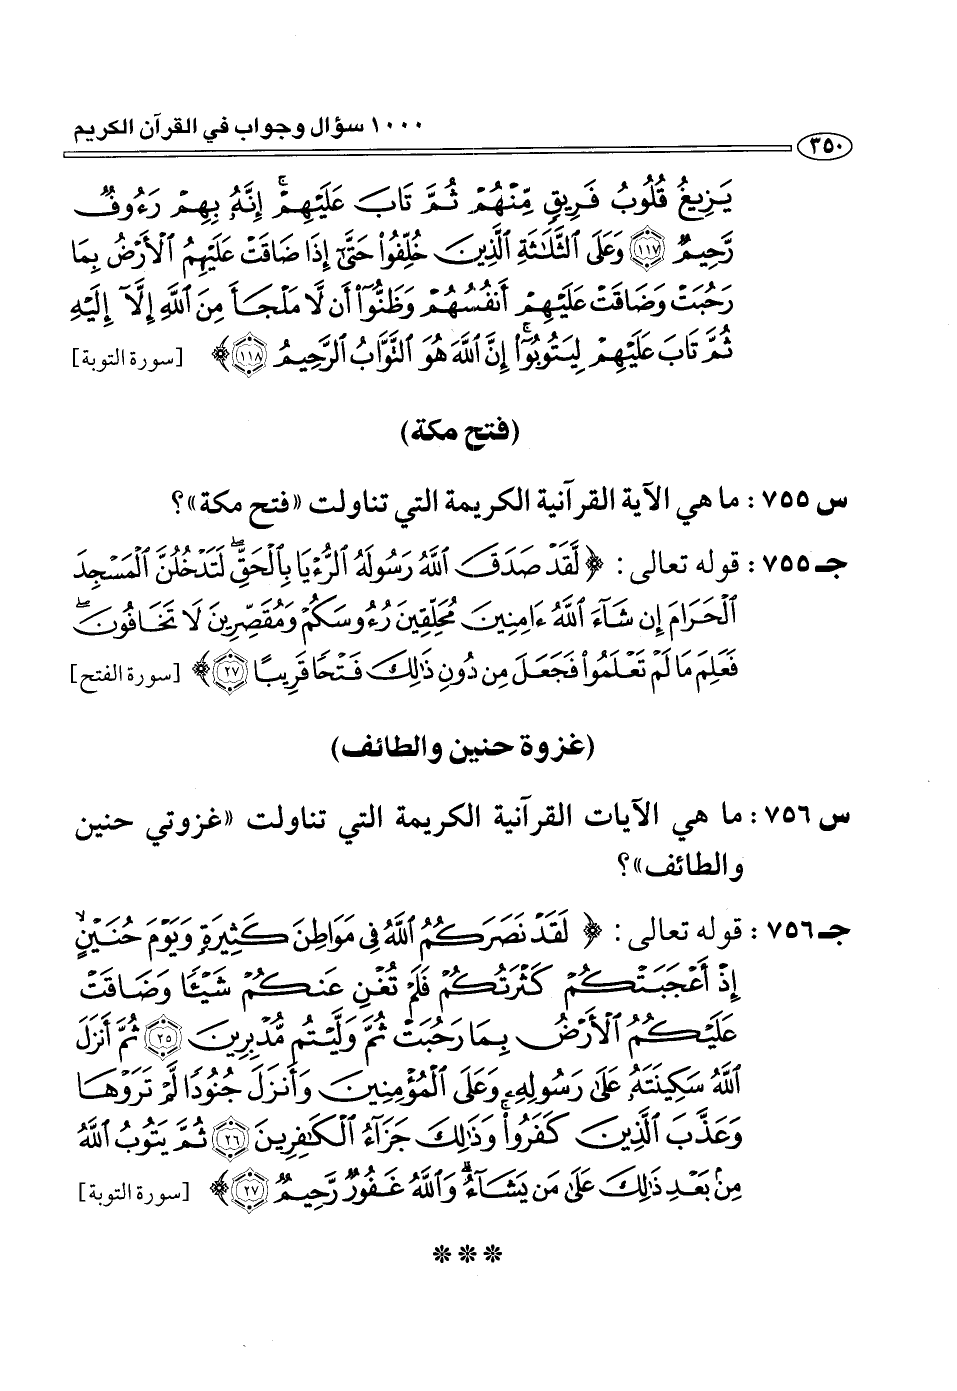 ١٠٠٠ سؤال وجواب في القرآن الكريم
٣٥٠
يَزِيغُ قُلُوبُ فَرِيقٍ مِّنْهُمْ ثُمَّ تَابَ عَلَيْهِمْ ۚ إِنَّهُ بِهِمْ رَءُوفٌ
رَّحِيمٌ ﴿١١٧﴾ وَعَلَى الثَّلَاثَةِ الَّذِينَ خُلِّفُوا حَتَّىٰ إِذَا ضَاقَتْ عَلَيْهِمُ الْأَرْضُ بِمَا
رَحُبَتْ وَضَاقَتْ عَلَيْهِمْ أَنفُسُهُمْ وَظَنُّوا أَن لَّا مَلْجَأَ مِنَ اللَّهِ إِلَّا إِلَيْهِ
ثُمَّ تَابَ عَلَيْهِمْ لِيَتُوبُوا ۚ إِنَّ اللَّهَ هُوَ التَّوَّابُ الرَّحِيمُ ﴿١١٨﴾ [سورة التوبة]
(فتح مكة)
س ٧٥٥ : ما هي الآية القرآنية الكريمة التي تناولت «فتح مكة»؟
جـ ٧٥٥ : قوله تعالى : ﴿ لَّقَدْ صَدَقَ اللَّهُ رَسُولَهُ الرُّءْيَا بِالْحَقِّ ۖ لَتَدْخُلُنَّ الْمَسْجِدَ
الْحَرَامَ إِن شَاءَ اللَّهُ ءَامِنِينَ مُحَلِّقِينَ رُءُوسَكُمْ وَمُقَصِّرِينَ لَا تَخَافُونَ ۖ
فَعَلِمَ مَا لَمْ تَعْلَمُوا فَجَعَلَ مِن دُونِ ذَٰلِكَ فَتْحًا قَرِيبًا ﴿٢٧﴾ [سورة الفتح]
(غزوة حنين والطائف)
س ٧٥٦ : ما هي الآيات القرآنية الكريمة التي تناولت «غزوتي حنين
والطائف»؟
جـ ٧٥٦ : قوله تعالى : ﴿ لَقَدْ نَصَرَكُمُ اللَّهُ فِي مَوَاطِنَ كَثِيرَةٍ وَيَوْمَ حُنَيْنٍ ۙ
إِذْ أَعْجَبَتْكُمْ كَثْرَتُكُمْ فَلَمْ تُغْنِ عَنكُمْ شَيْئًا وَضَاقَتْ
عَلَيْكُمُ الْأَرْضُ بِمَا رَحُبَتْ ثُمَّ وَلَّيْتُم مُّدْبِرِينَ ﴿٢٥﴾ ثُمَّ أَنزَلَ
اللَّهُ سَكِينَتَهُ عَلَىٰ رَسُولِهِ وَعَلَى الْمُؤْمِنِينَ وَأَنزَلَ جُنُودًا لَّمْ تَرَوْهَا
وَعَذَّبَ الَّذِينَ كَفَرُوا ۚ وَذَٰلِكَ جَزَاءُ الْكَافِرِينَ ﴿٢٦﴾ ثُمَّ يَتُوبُ اللَّهُ
مِن بَعْدِ ذَٰلِكَ عَلَىٰ مَن يَشَاءُ ۗ وَاللَّهُ غَفُورٌ رَّحِيمٌ ﴿٢٧﴾ [سورة التوبة]
***